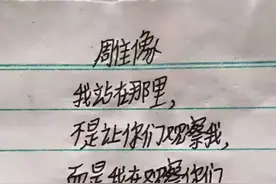 周住像
我站在那里，
不是让你们观察我，
而是我在观察你们